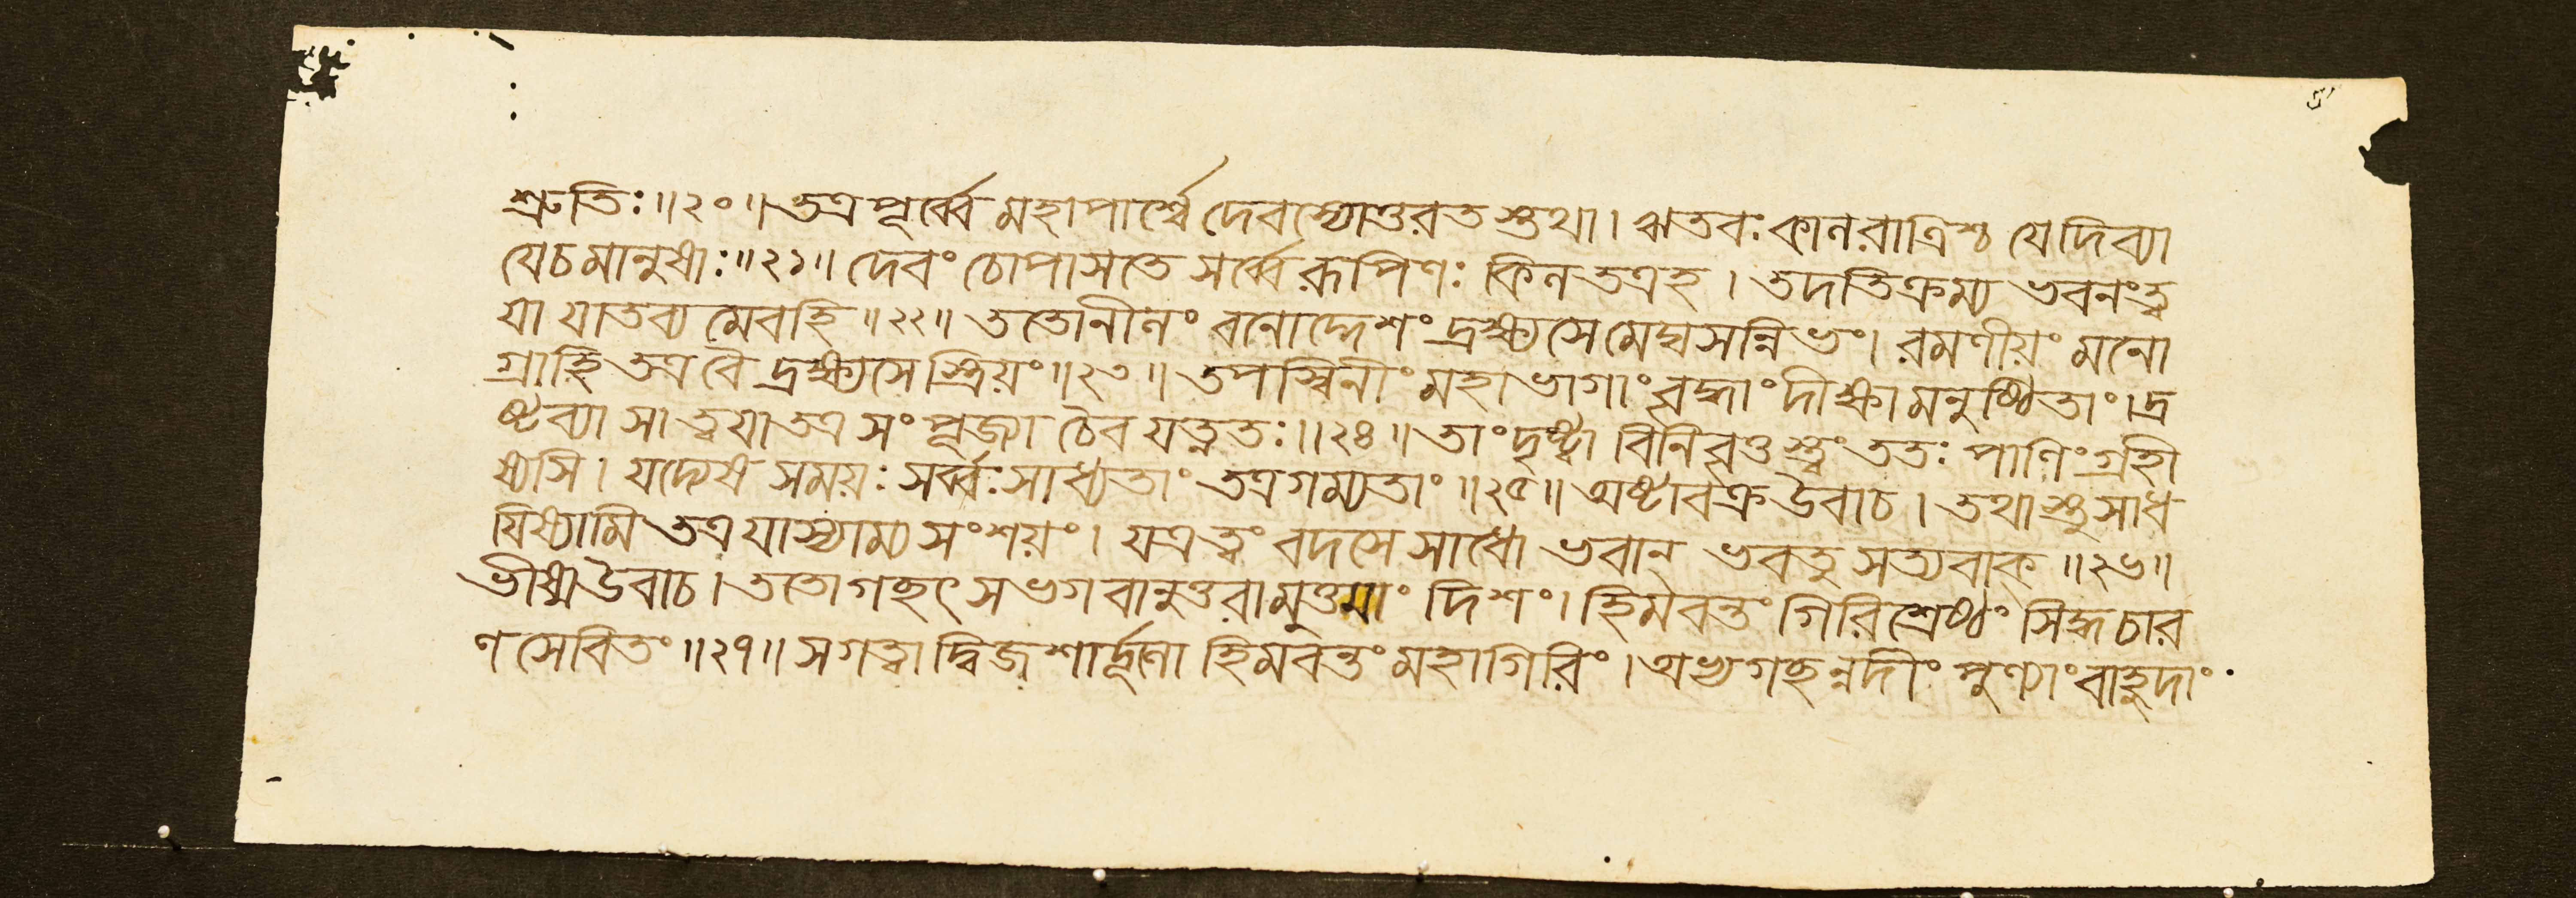 শ্রুতিঃ॥২০॥তত্রপূর্ব্বেমহাপার্শ্বেদেবস্যোত্তরতস্তথা। ঋতবঃকালরাত্রিশ্চ যেদিব্যা
যেচমানুষাঃ॥২১॥ দেবং চোপাসতে সর্ব্বেরূপিণঃ কিলতত্রহ। তদতিক্রম্য ভবনংত্ব
যা যাতব্য মেবহি॥২২॥ ততোনীলং বনোদ্দেশং দ্রক্ষ্যসেমেঘসন্নিভং। রমণীয়ং মনো
গ্রাহি তত্র বৈ দ্রক্ষ্যসেস্ত্রিয়ং॥২৩॥ তপস্বিনীং মহাভাগাং বৃদ্ধাং দীক্ষামনুষ্ঠিতাং। দ্র
ষ্টব্যা সা ত্বয়াতত্র সংপূজ্যা চৈব যত্নতঃ॥২৪॥ তাংদৃষ্ট্বা বিনিবৃত্তস্ত্বং ততঃ পাণিংগ্রহী
ষ্যসি। যদ্যেষ সময়ঃ সর্ব্বঃ সাধ্যতাং তত্রগম্যতাং॥২৫॥ অষ্টাবক্রউবাচ। তথাস্তুসাধ
যিষ্যামি তত্রযাস্যাম্য সংশয়ং। যত্রত্বং বদসে সাধো ভবান্ ভবতু সত্যবাক্॥২৬॥
ভীষ্মউবাচ। ততোগচ্ছৎ স ভগবানুত্তরামুত্তমাং দিশং। হিমবন্তং গিরিশ্রেষ্ঠং সিদ্ধচার
ণ সেবিতং॥২৭॥ সগত্বা দ্বিজশার্দ্দূলো হিমবন্তং মহাগিরিং। অভ্যগচ্ছন্নদীং পুণ্যাংবাহুদাং